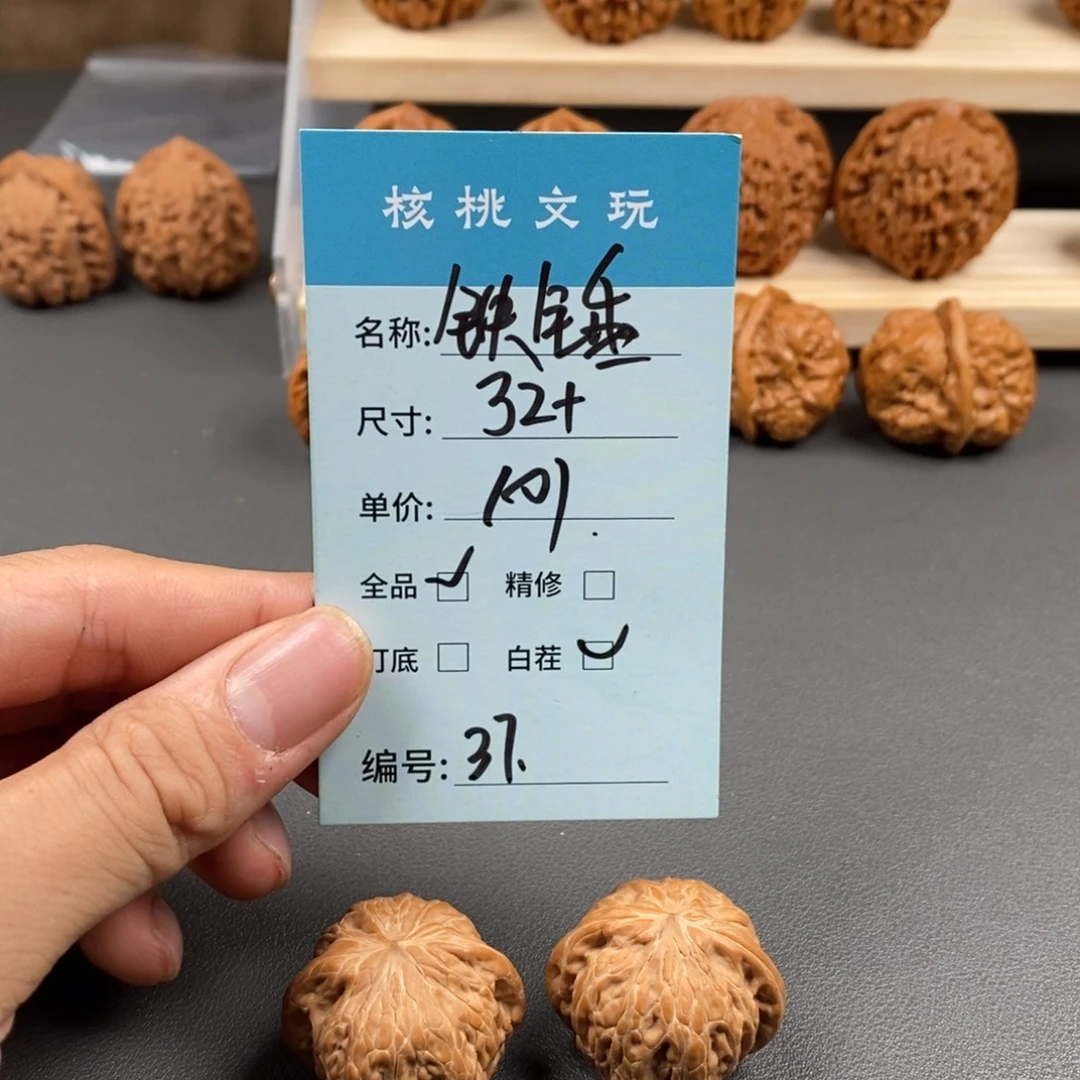 核桃文玩
名称: 铁锤
尺寸: 32+
单价:
全品 精修
底 白茬
编号: 37.